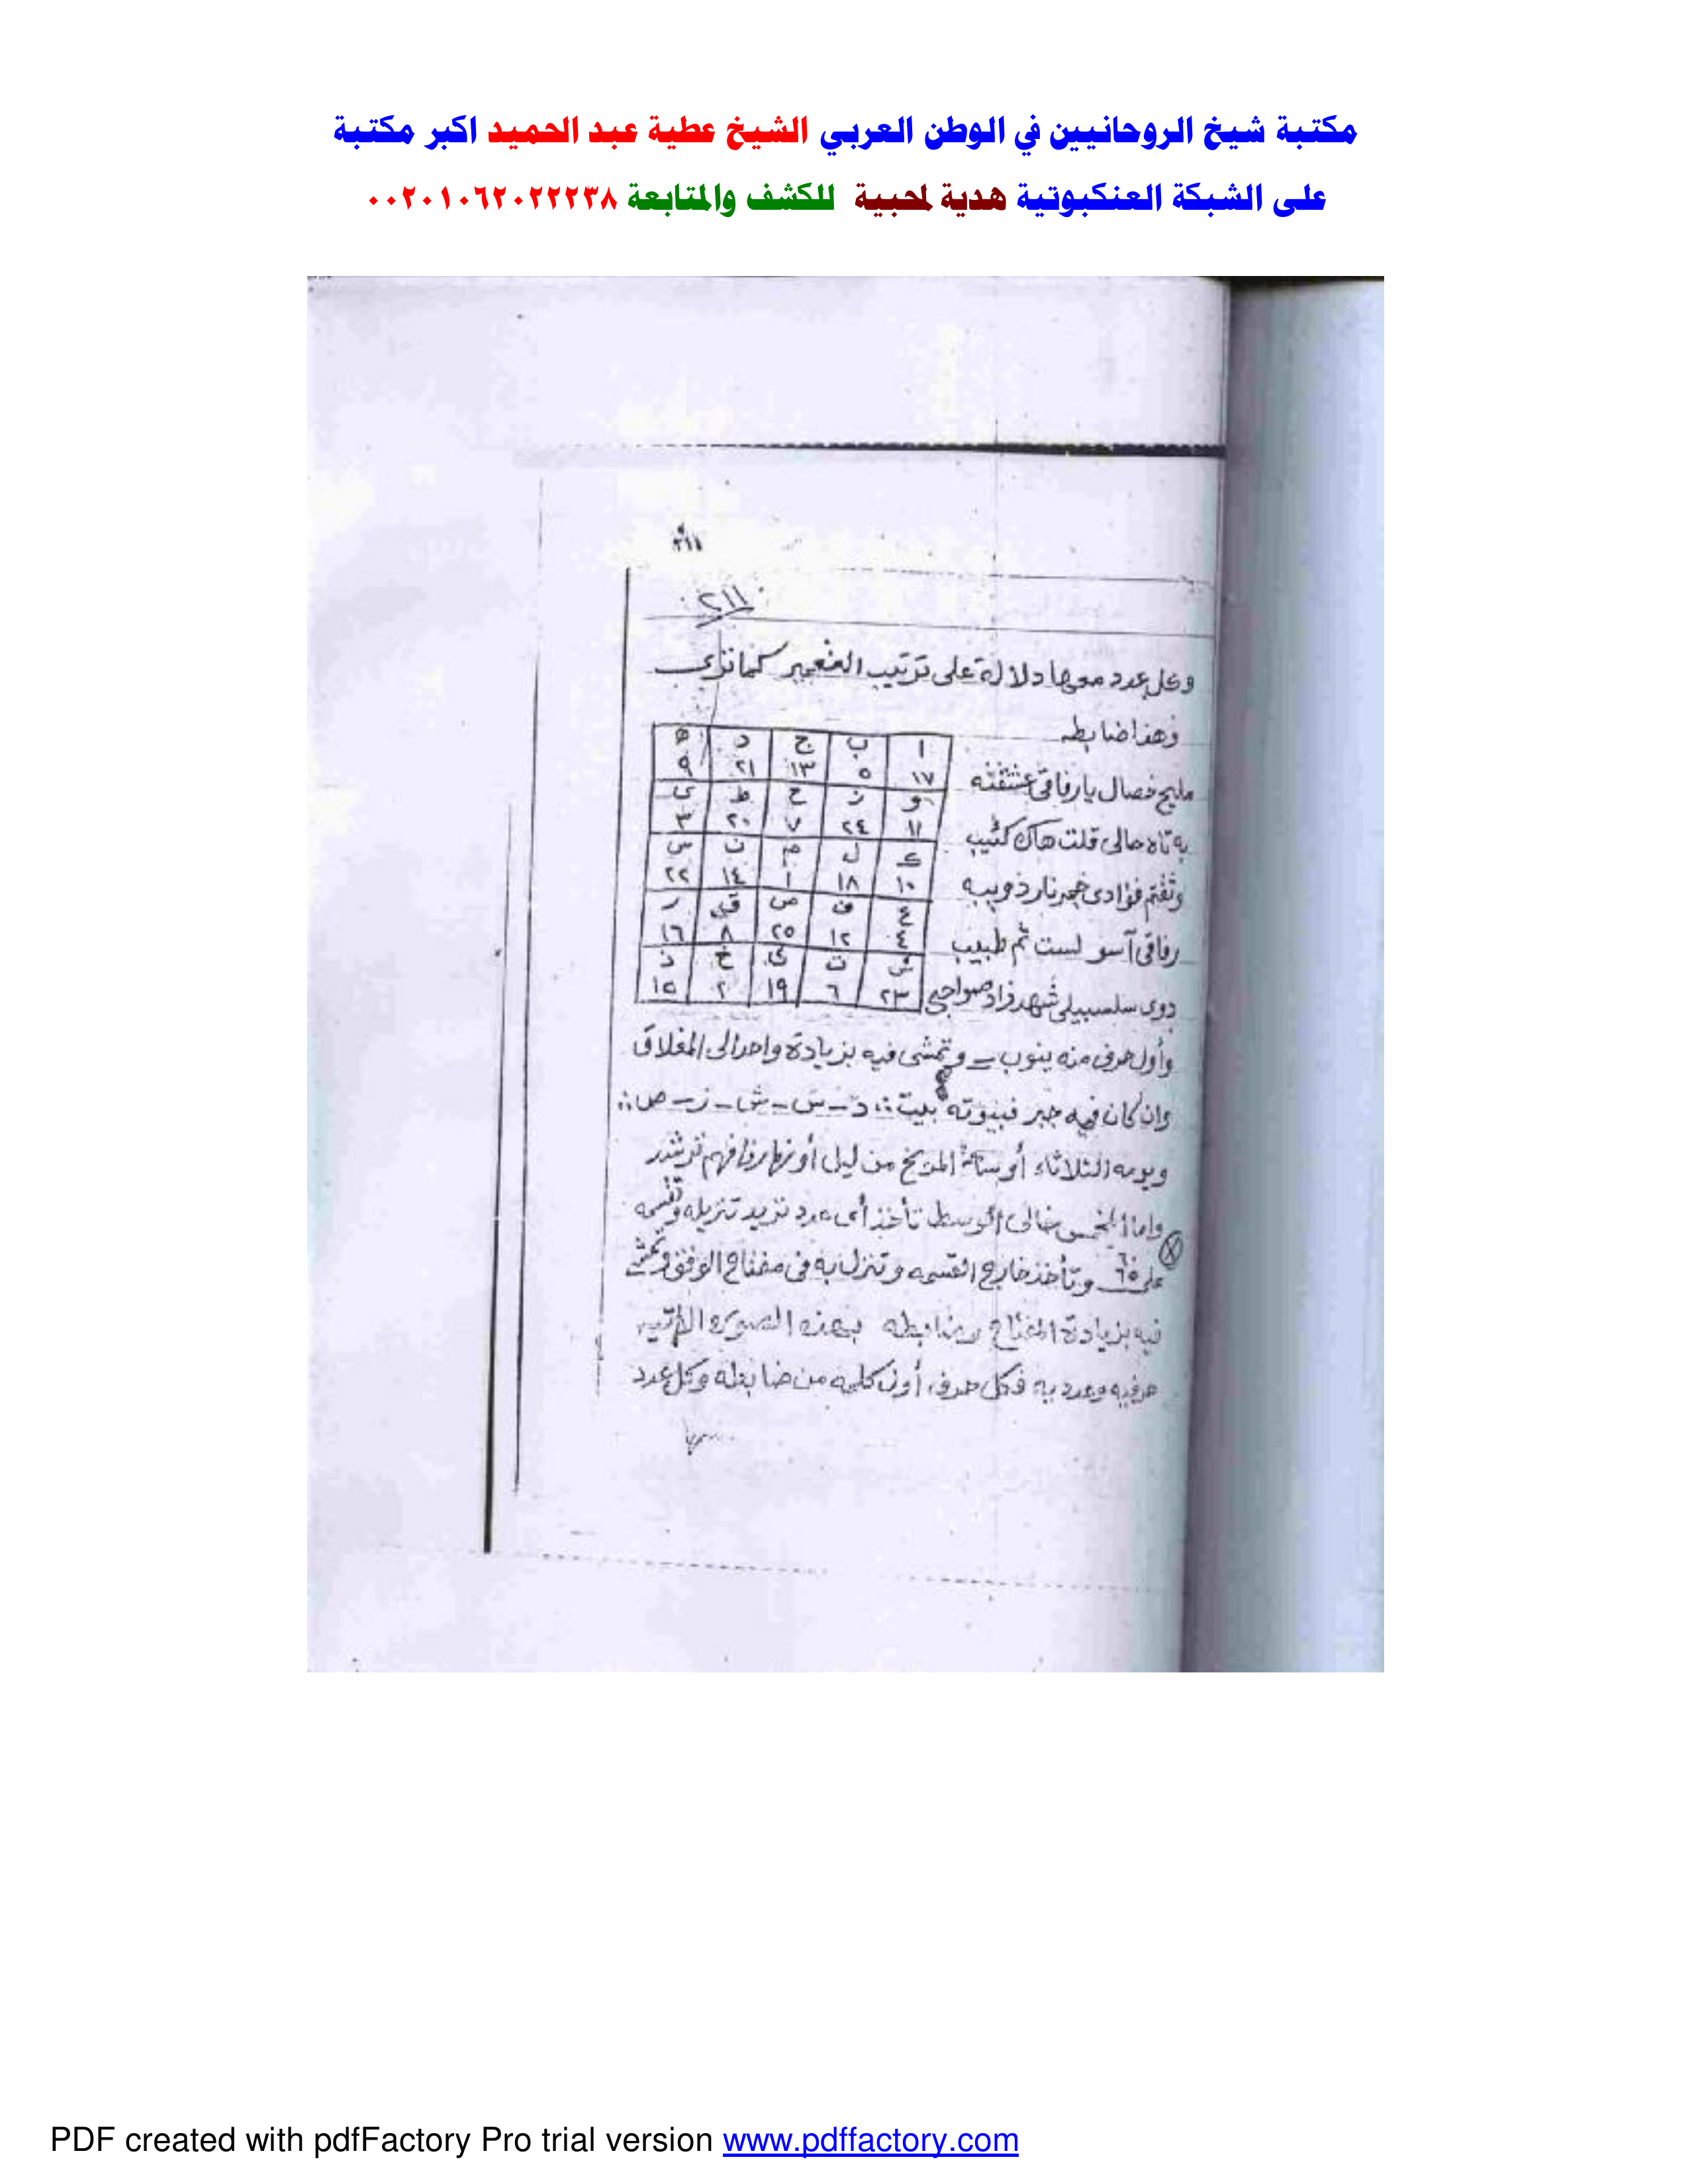 مكتبة شيخ الروحانيين في الوطن العربي الشيخ عطية عبد الحميد اكبر مكتبة
على الشبكة العنكبوتية هدية لمحبيه للكشف والمتابعة ٠٠٢٠١٠٦٢٠٢٢٢٣٨
٢١١
٢١١
وكل عدد معها دلالة على ترتيب كما ترى
وهذا ضابطه
ا ب ج د ه
١٧ ٥ ١٣ ٢١ ٩
و ز ح ط ى
١١ ٢٤ ٧ ٢٠ ٣
ك ل م ن س
١٠ ١٨ ١ ١٤ ٢٢
ع ف ص ق ر
٤ ١٢ ٢٥ ٨ ١٦
ش ت ث خ ذ
٢٣ ٦ ١٩ ٢ ١٥
مليح خصال يا رفاقى عشقته
به تاه حالى قلت هاك كئيب
فؤادى نار
رفاقى آسو لست ثم طبيب
دوى سلسبيلى شهد زاد
وأول حرف منه ينوب وتمشى فيه بزيادة واحد الى المغلاق
وان كان فيه جبر فبيوته بيت د - س - ش - ز - ص
ويومه الثلاثاء أو ساعة المريخ من ليل أو نهار فافهم ترشد
واما المخمس خالى الوسط تأخذ أى عدد تريد تنزيله وتقسمه
على ٦٠ وتأخذ خارج القسمه وتنزل به فى مفتاح الوفق وتمشى
فيه بزيادة المفتاح وضابطه بهذه الصوره الاتيه
حرفيه وعدديه فكل حرف أول كلمه من ضابطه وكل عدد
PDF created with pdfFactory Pro trial version www.pdffactory.com